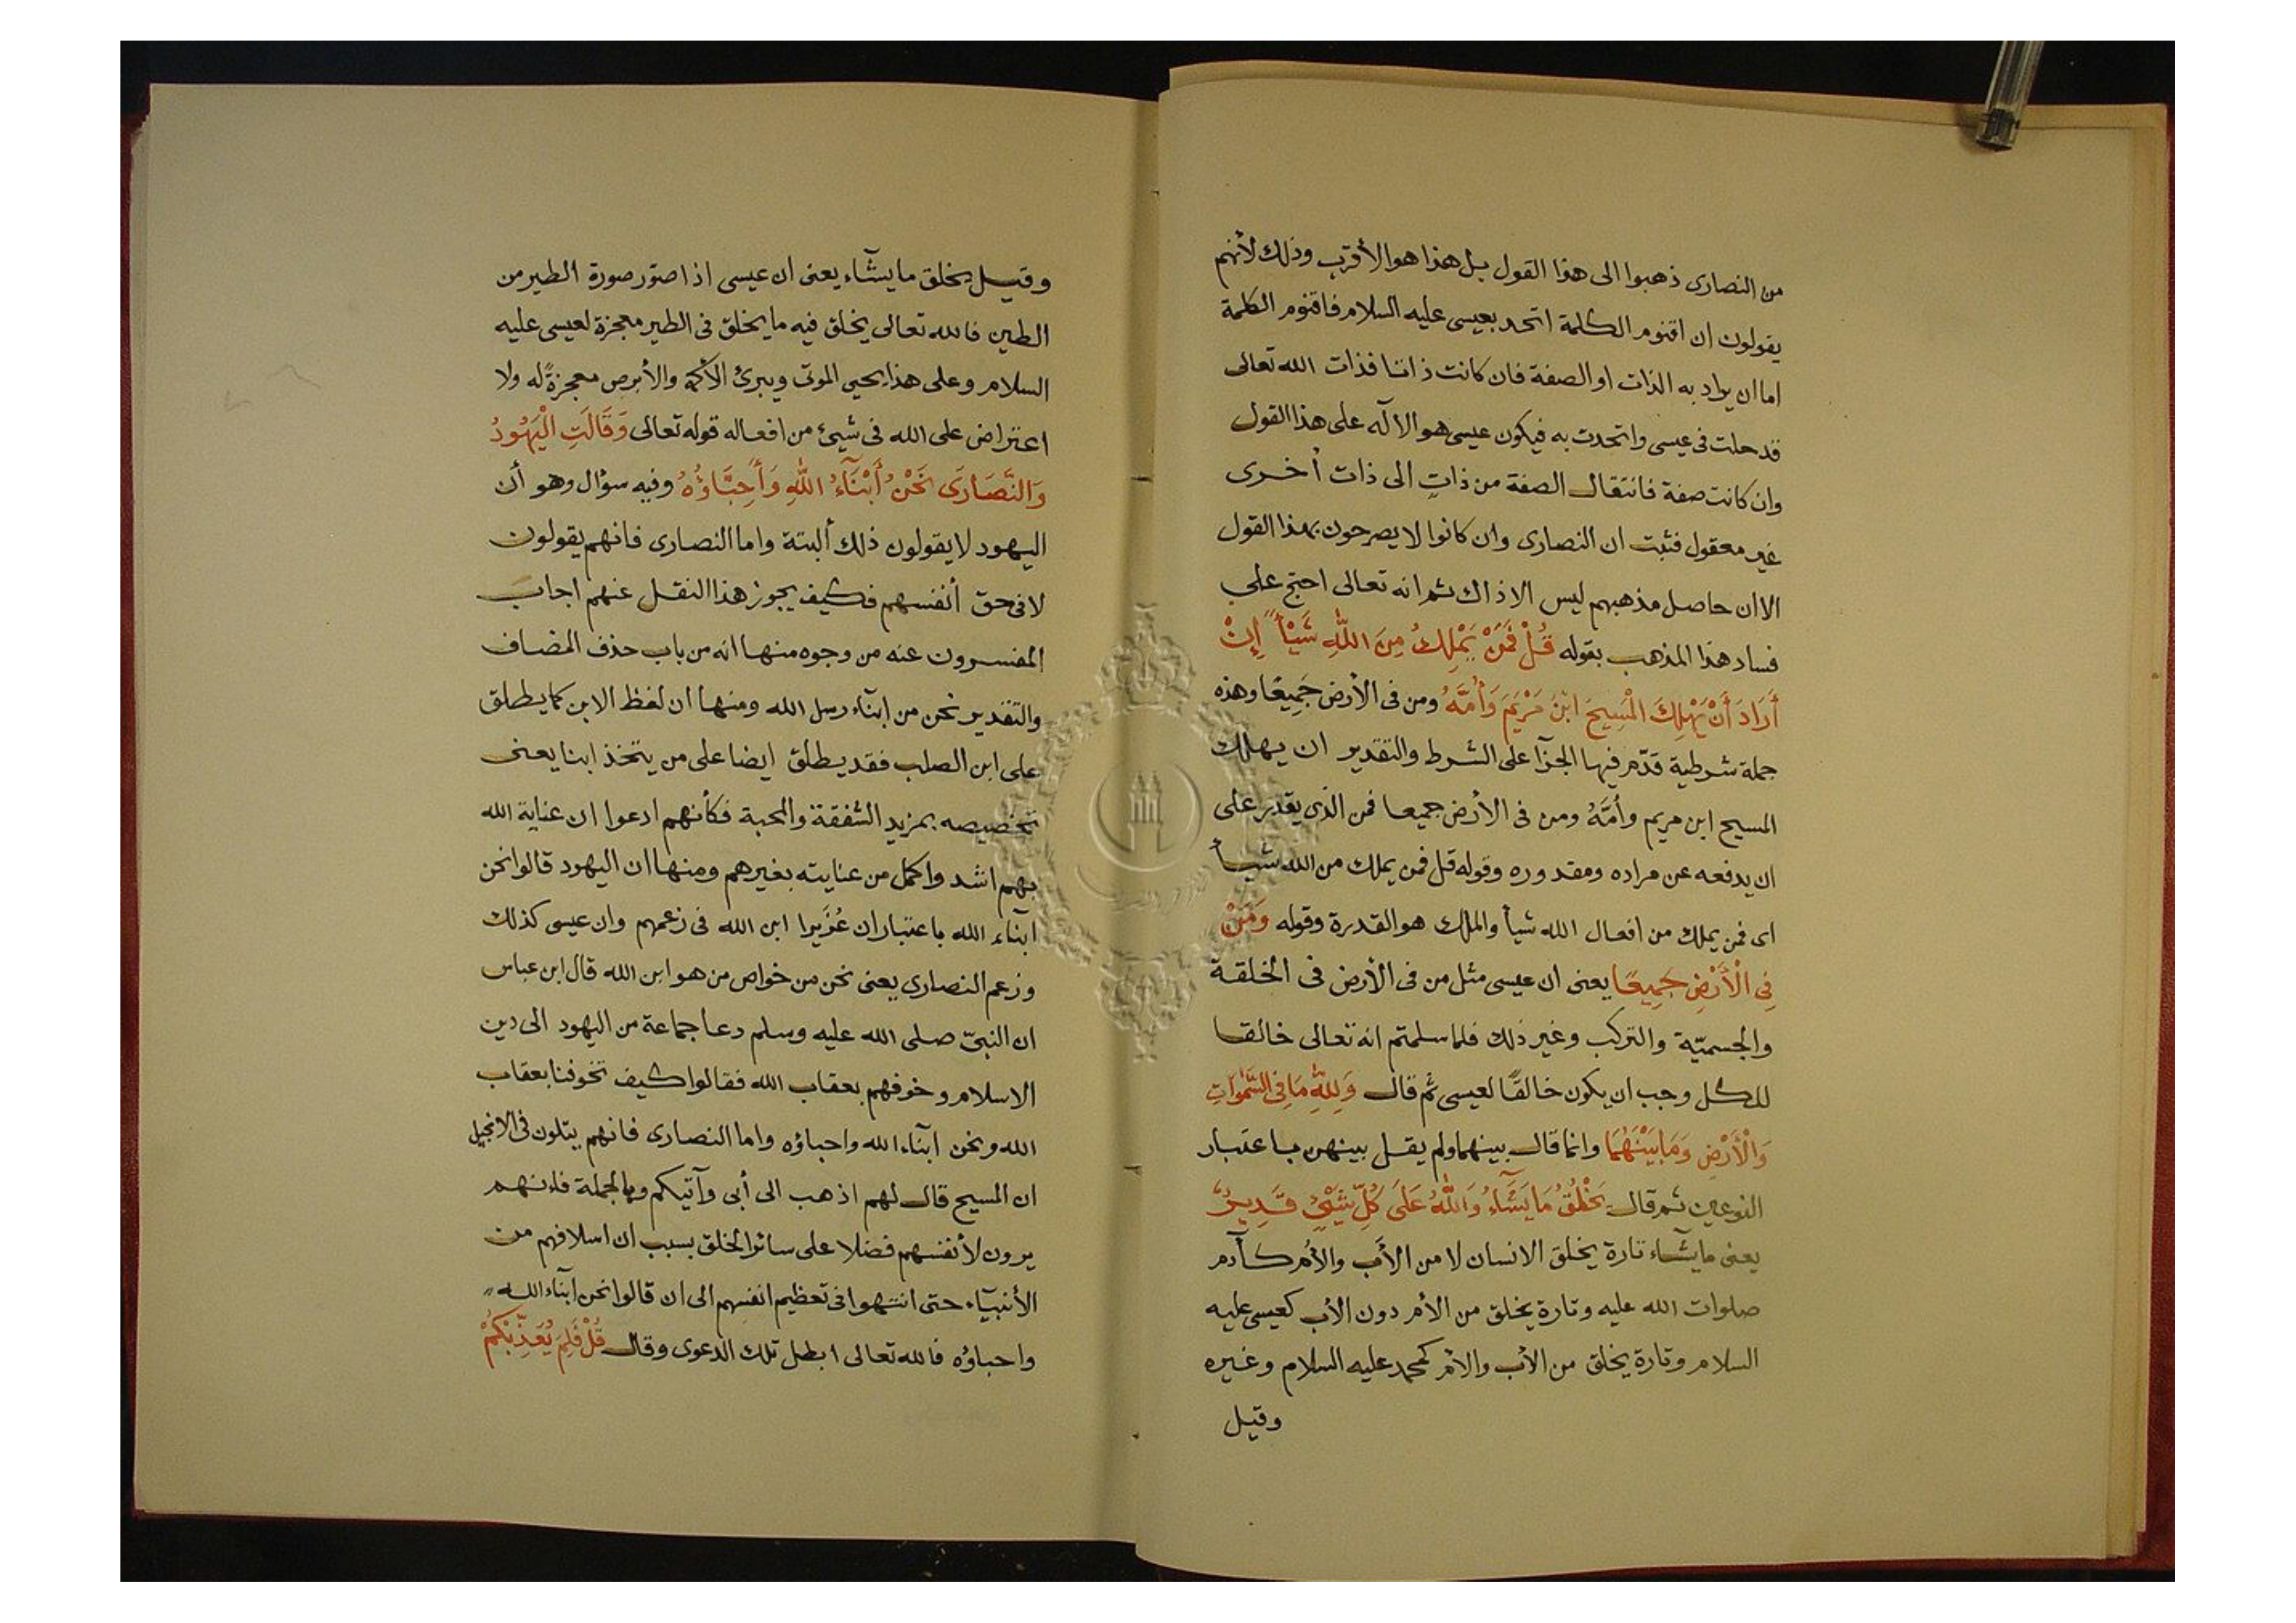 من النصارى ذهبوا الى هذا القول بل هذا هو الأقرب وذلك لأنهم
يقولون ان اقنوم الكلمة اتحد بعيسى عليه السلام فاقنوم الكلمة
اما ان يراد به الذات او الصفة فان كانت ذاتا فذات الله تعالى
قد حلت فى عيسى واتحدت به فيكون عيسى هو الاآله على هذا القول
وان كانت صفة فانتقال الصفة من ذاتٍ الى ذات أخرى
غير معقول فثبت ان النصارى وان كانوا لا يصرحون بهذا القول
الا ان حاصل مذهبهم ليس الا ذاك ثم انه تعالى احتج على
فساد هذا المذهب بقوله قُلْ فَمَنْ يَمْلِكُ مِنَ اللّٰهِ شَيْأً إِنْ
أَرَادَ أَنْ يَهْلِكَ الْمَسِيحَ ابْنَ مَرْيَمَ وَأُمَّهُ ومن فى الأرض جَمِيعًا وهذه
جملة شرطية قدّم فيها الجزآ على الشرط والتقدير ان يهلك
المسيح ابن مريم وأُمَّهُ ومن فى الأرض جميعا فمن الذى يقدر على
ان يدفعه عن مراده ومقدوره وقوله قل فمن يملك من الله شيأ
اى فمن يملك من افعال الله شيأ والملك هو القدرة وقوله وَمَنْ
فِى الْأَرْضِ جَمِيعًا يعنى ان عيسى مثل من فى الأرض فى الخلقة
والجسميّة والتركب وغير ذلك فلما سلمتم انه تعالى خالقا
للكل وجب ان يكون خالقًا لعيسى ثم قال وَلِلّٰهِ مَا فِى السَّمٰوَاتِ
وَالْأَرْضِ وَمَا بَيْنَهُمَا وانما قال بينهما ولم يقل بينهن باعتبار
النوعين ثم قال يَخْلُقُ مَا يَشَآءُ وَاللّٰهُ عَلَى كُلِّ شَيْئٍ قَدِيرٌ
يعنى ما يشآء تارة يخلق الانسان لا من الأب والأم كآدم
صلوات الله عليه وتارة يخلق من الأم دون الأب كعيسى عليه
السلام وتارة يخلق من الأب والأم كمحمد عليه السلام وغيره
وقيل
وقيل يخلق ما يشآء يعنى ان عيسى اذا صوّر صورة الطير من
الطين فالله تعالى يخلق فيه ما يخلق فى الطير معجزة لعيسى عليه
السلام وعلى هذا يحيى الموتى ويبرئ الأكمه والأبرص معجزةً له ولا
اعتراض على الله فى شيئ من افعاله قوله تعالى وَقَالَتِ الْيَهُودُ
وَالنَّصَارَى نَحْنُ أَبْنَآءُ اللّٰهِ وَأَحِبَّاؤُهُ وفيه سؤال وهو أن
اليهود لا يقولون ذلك ألبتة واما النصارى فانهم يقولون
لا فى حق أنفسهم فكيف يجوز هذا النقل عنهم اجاب
المفسرون عنه من وجوه منها انه من باب حذف المضاف
والتقدير نحن من ابنآء رسل الله ومنها ان لفظ الابن كما يطلق
على ابن الصلب فقد يطلق ايضا على من يتخذ ابنا يعنى
تخصيصه بمزيد الشفقة والمحبة فكأنهم ادعوا ان عناية الله
بهم اشد واكمل من عنايته بغيرهم ومنها ان اليهود قالوا نحن
ابنآء الله باعتبار ان عُزَيرا ابن الله فى زعمهم وان عيسى كذلك
وزعم النصارى يعنى نحن من خواص من هو ابن الله قال ابن عباس
ان النبىّ صلى الله عليه وسلم دعا جماعة من اليهود الى دين
الاسلام وخوفهم بعقاب الله فقالوا كيف تخوفنا بعقاب
الله ونحن ابنآء الله واحباؤه واما النصارى فانهم يتلون فى الانجيل
ان المسيح قال لهم اذهب الى أبى وآتيكم وبالجملة فانهم
يرون لأنفسهم فضلا على سائر الخلق بسبب ان اسلافهم من
الأنبيآء حتى انتهوا فى تعظيم انفسهم الى ان قالوا نحن ابنآء الله
واحباؤه فالله تعالى ابطل تلك الدعوى وقال قُلْ فَلِمَ يُعَذِّبُكُمْ